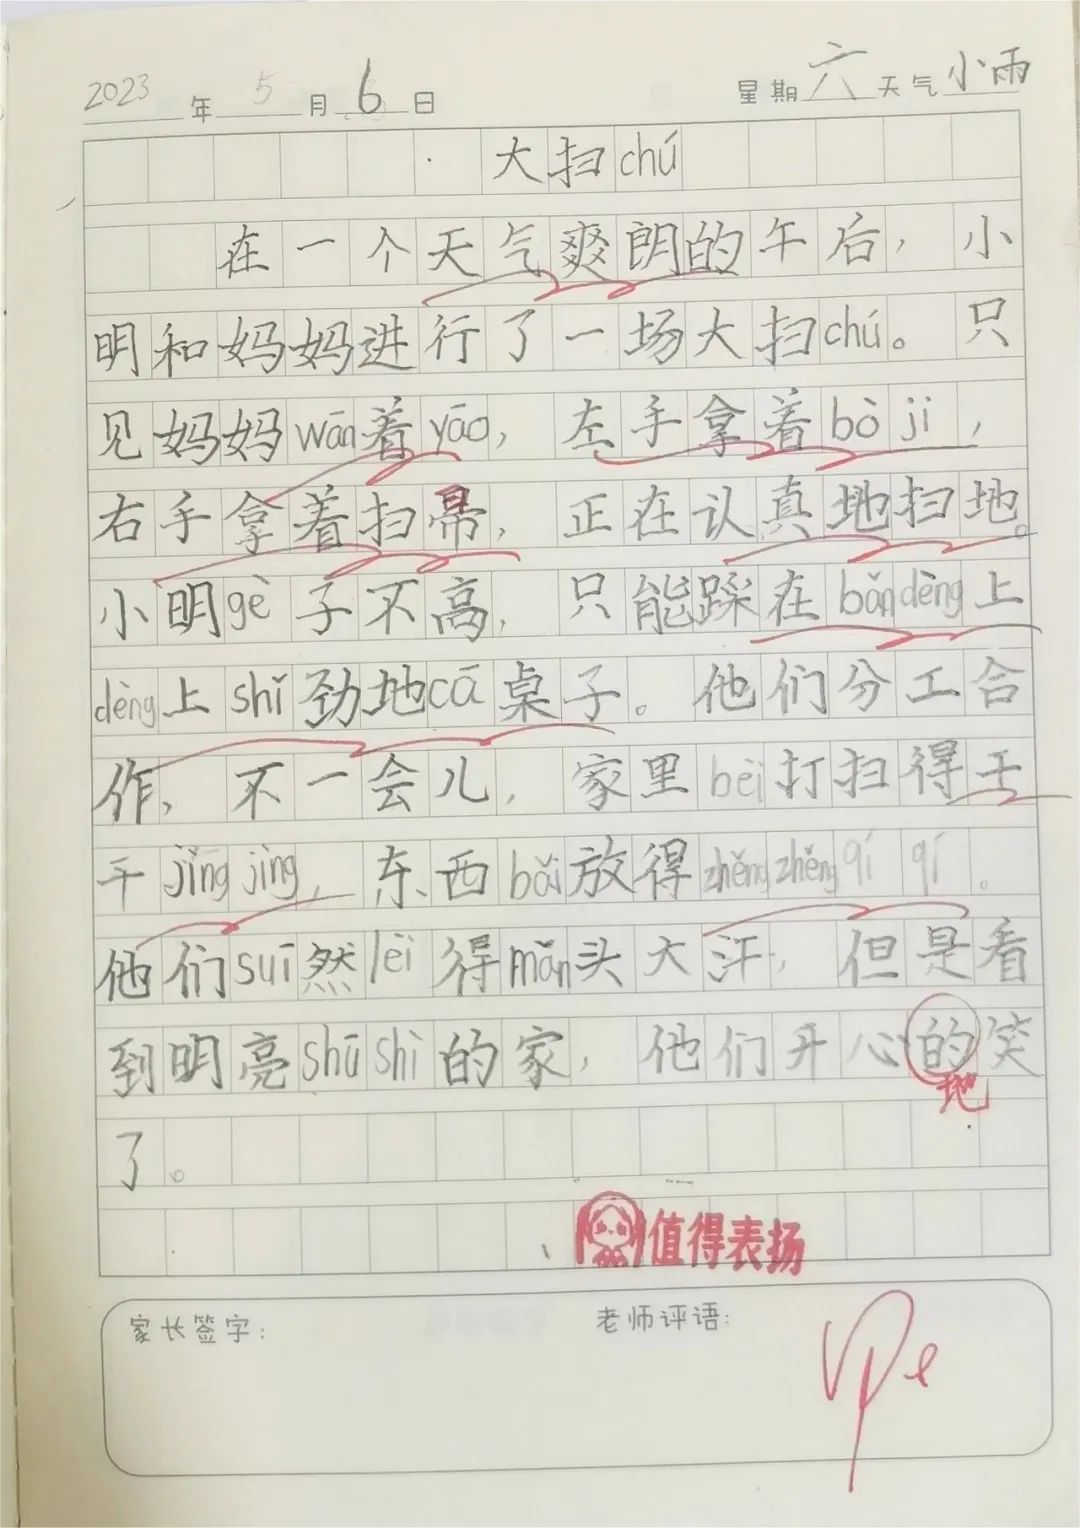 2023年5月6日 星期六天气小雨
大扫chú
在一个天气爽朗的午后，小
明和妈妈进行了一场大扫chú。只
见妈妈wān着yāo，左手拿着bò ji，
右手拿着扫帚，正在认真地扫地。
小明gè子不高，只能踩在bǎndèng上
dèng上shǐ劲地cā桌子。他们分工合
作，不一会儿，家里bèi打扫得干
干jìngjìng，东西bǎi放得zhěngzhěngqí qí。
他们suī然lèi得mǎn头大汗，但是看
到明亮shūshì的家，他们开心的笑
地
了。
值得表扬
家长签字： 老师评语：